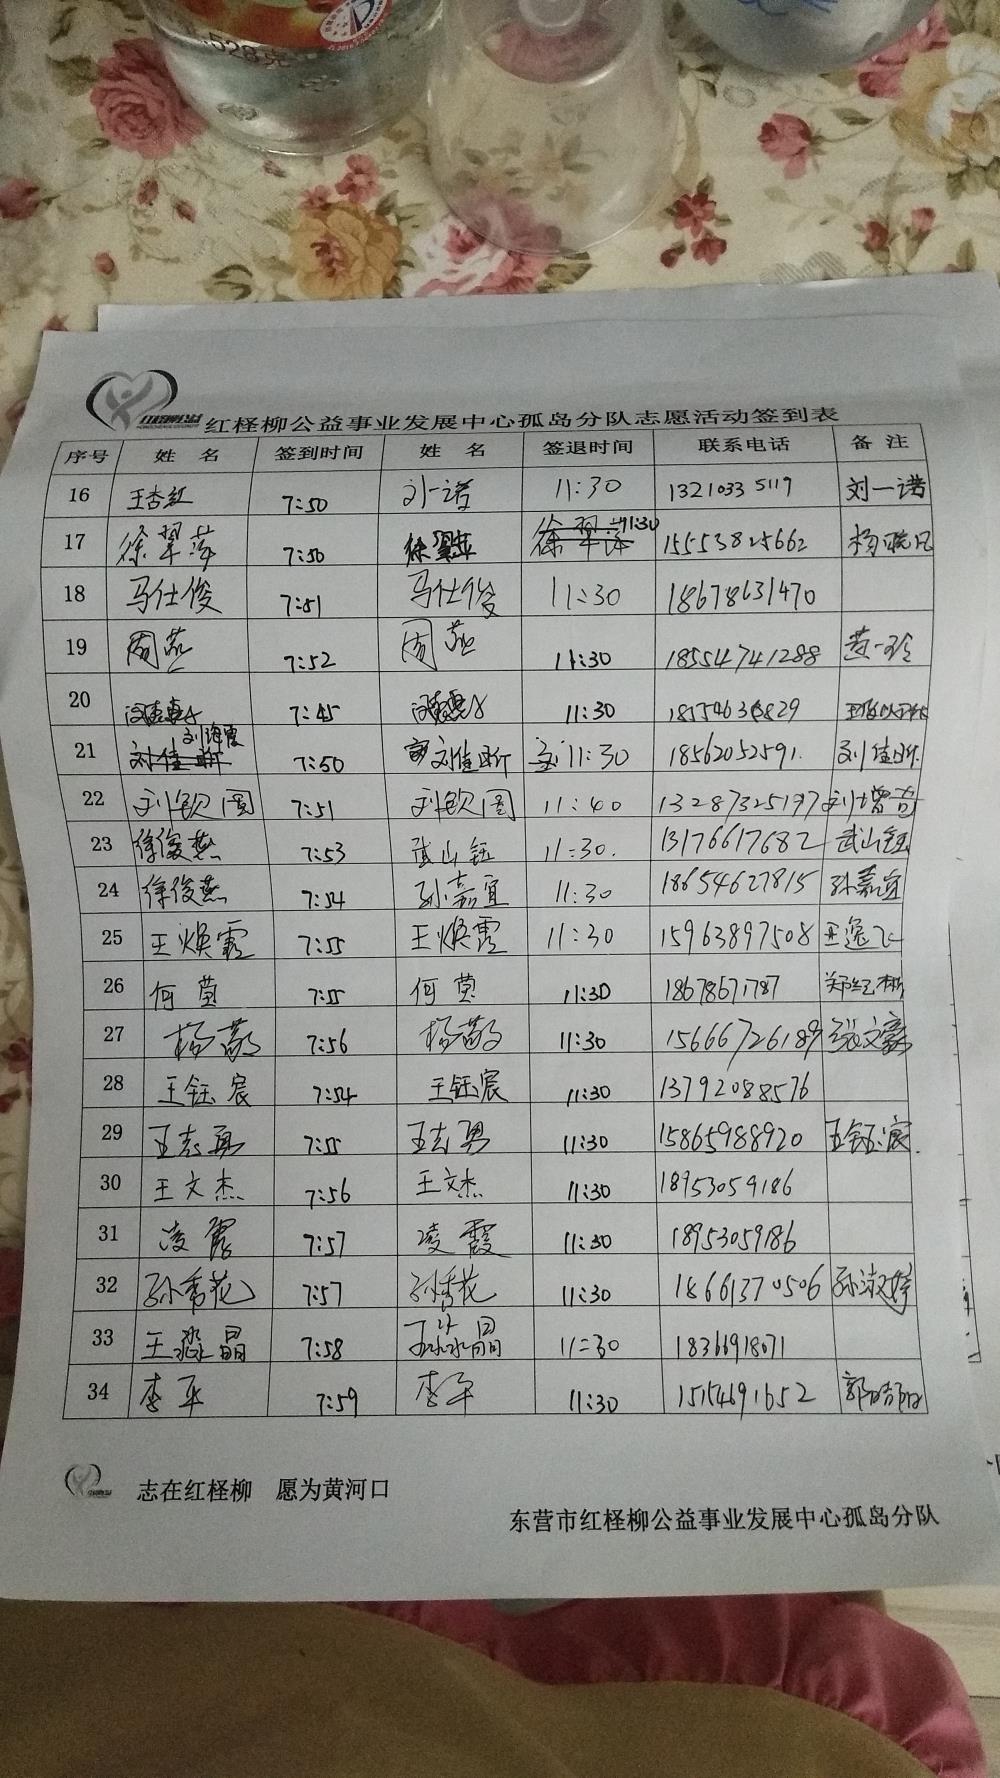 .528克
红柽柳公益事业发展中心孤岛分队志愿活动签到表
序号 姓 名 签到时间 姓 名 签退时间 联系电话 备 注
16 王杏红 7:50 刘一诺 11:30 13210335119 刘一诺
17 徐翠萍 7:50 徐翠萍 11:30 15553825662
18 马仕俊 7:51 马仕俊 11:30 18678631470
19 周燕 7:52 周燕 11:30 18554741288
20 7:45 11:30
21 刘海霞 7:50 刘佳昕 11:30 18562052591. 刘佳昕
22 刘钦国 7:51 刘钦国 11:40 13287325197 刘增奇
23 徐俊燕 7:53 武山钰 11:30. 13176617682 武山钰
24 徐俊燕 7:54 孙嘉宜 11:30 18654627815 孙嘉宜
25 王焕霞 7:55 王焕霞 11:30 15963897508 王逸飞
26 何莹 7:55 何莹 11:30 18678671787
27 杨敬 7:56 杨敬 11:30 15666726189 张文豪
28 王钰宸 7:54 王钰宸 11:30 13792088576
29 王志勇 7:55 王志男 11:30 15865988920 王钰宸
30 王文杰 7:56 王文杰 11:30 18953059186
31 凌霞 7:57 凌霞 11:30 18953059186
32 孙秀花 7:57 孙秀花 11:30 18661370506 孙淑婷
33 王淼晶 7:58 王淼晶 11:30 18366918071
34 李平 7:59 李平 11:30 15154691652
志在红柽柳 愿为黄河口
东营市红柽柳公益事业发展中心孤岛分队